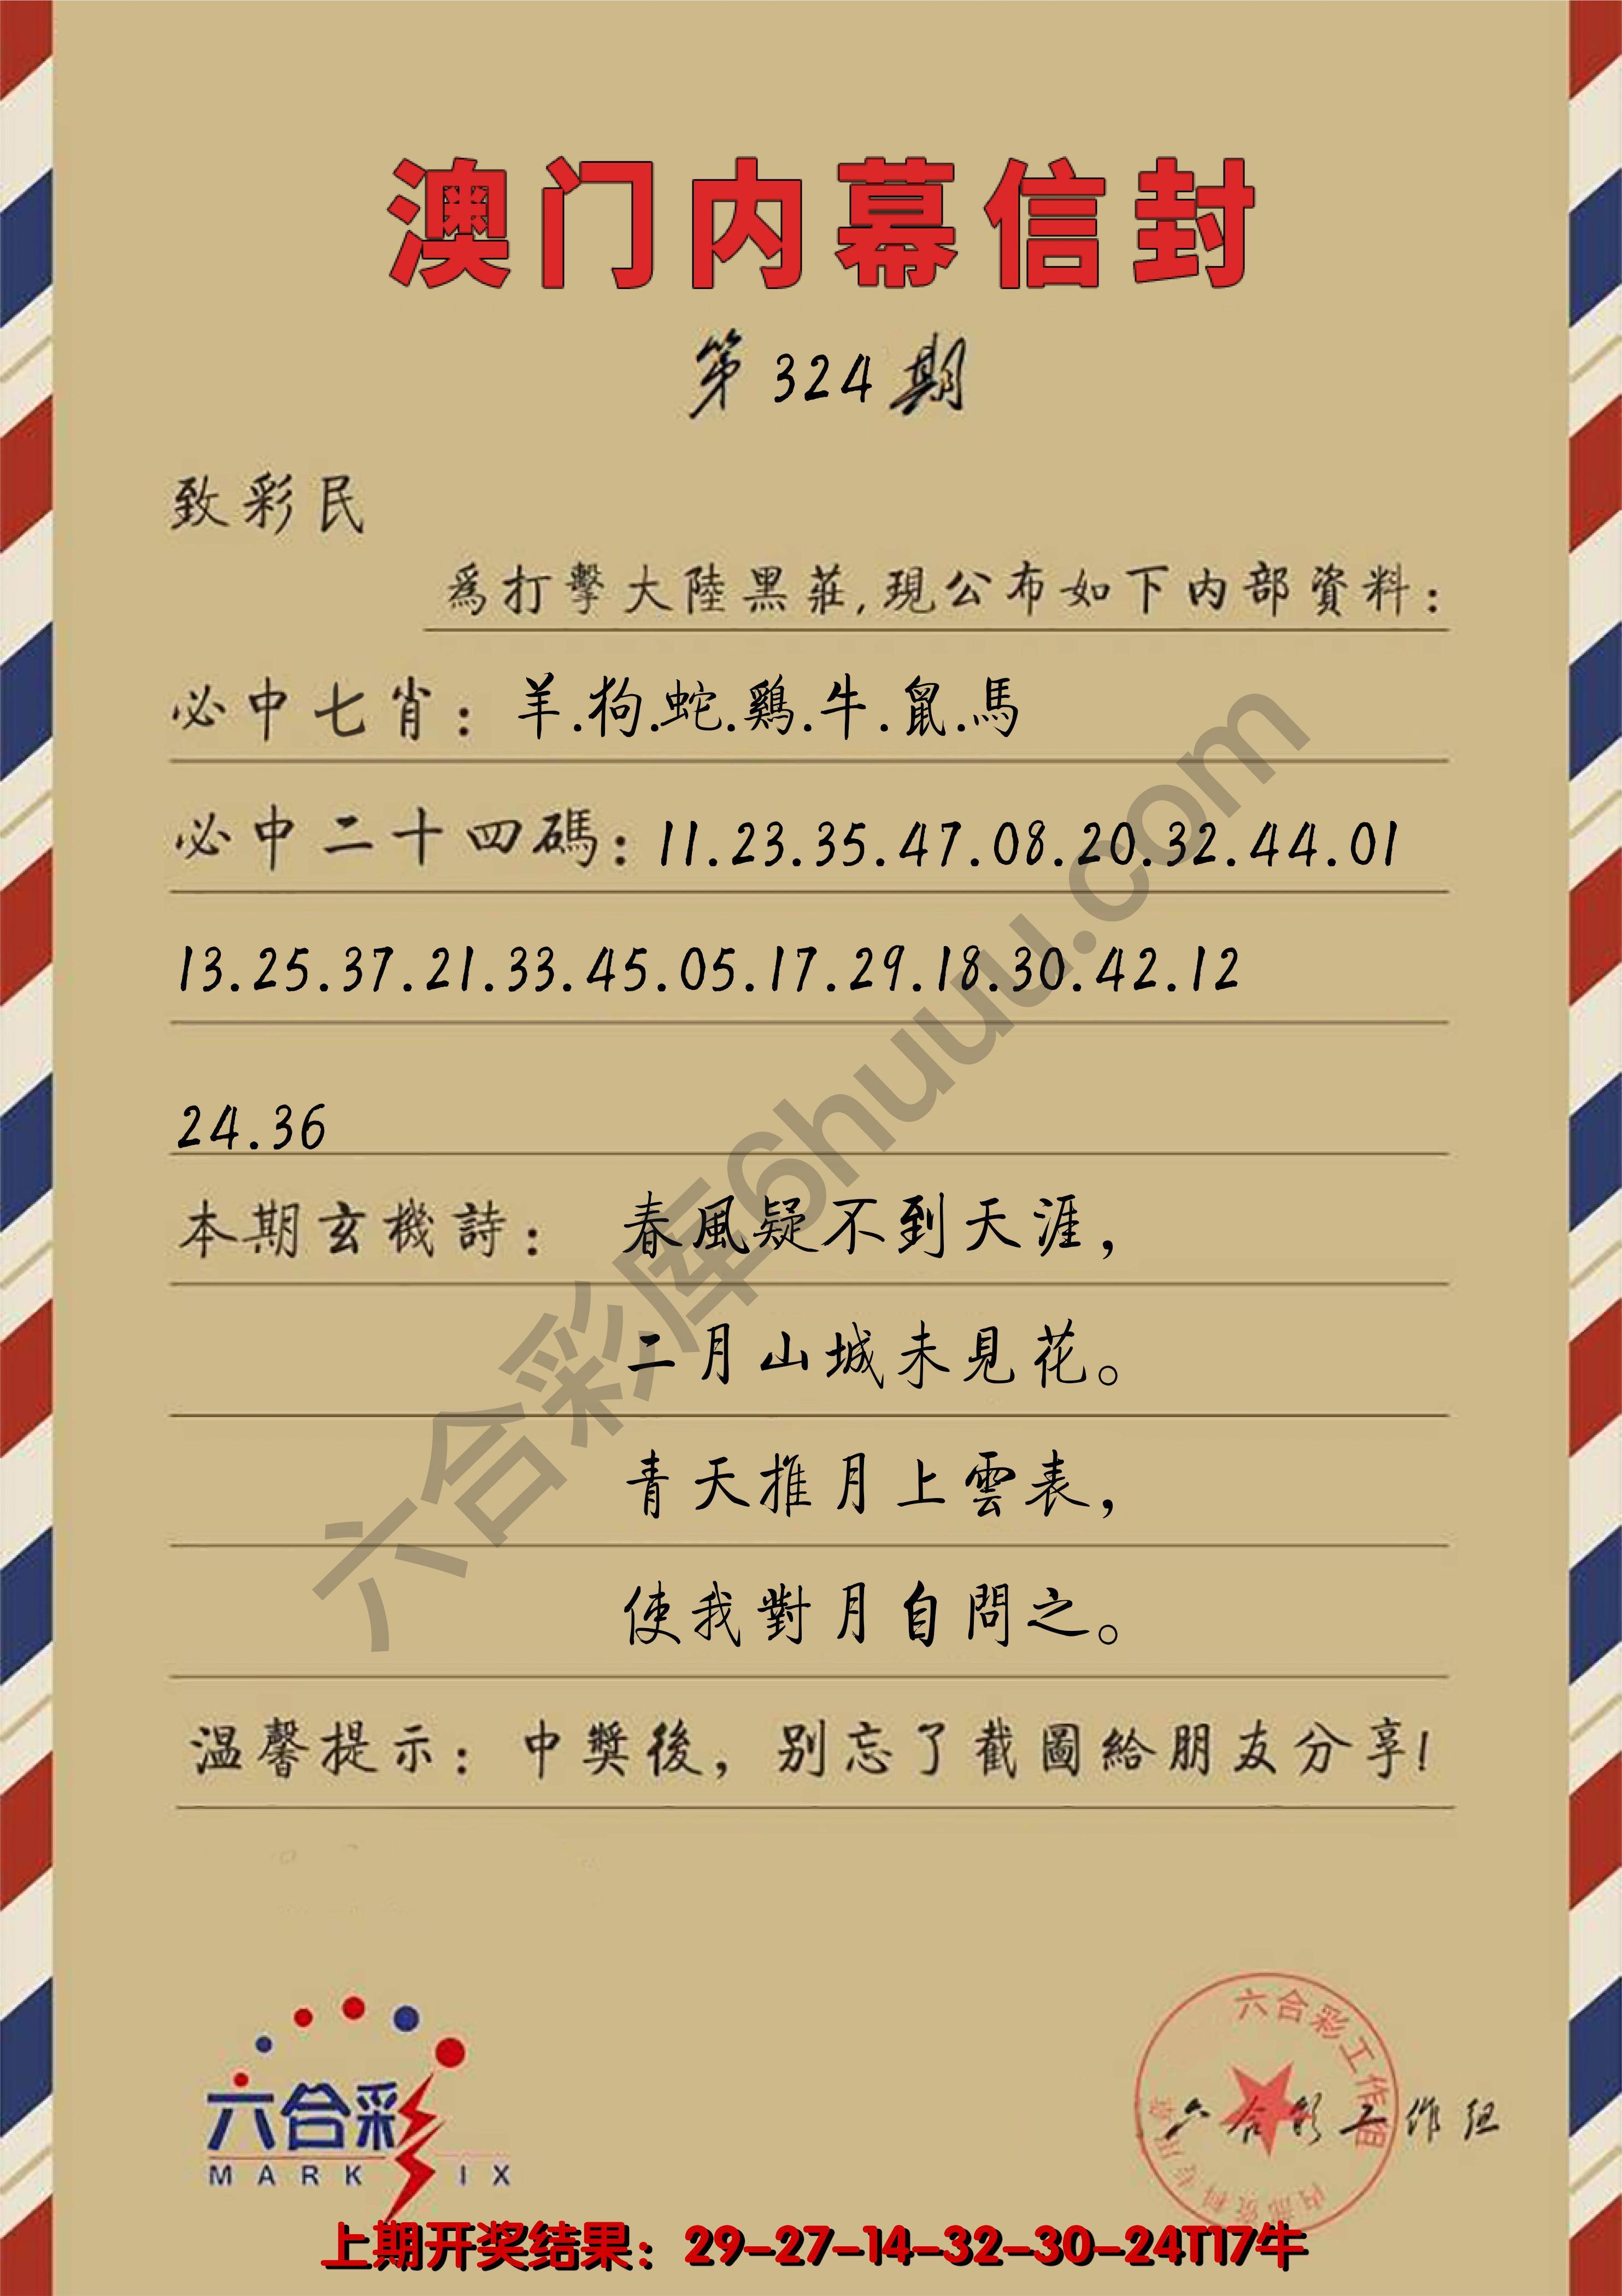 澳门内幕信封
第324期
致彩民
爲打擊大陸黑莊,現公布如下内部資料:
必中七肖: 羊.狗.蛇.鷄.牛.鼠.馬
必中二十四碼: 11.23.35.47.08.20.32.44.01
13.25.37.21.33.45.05.17.29.18.30.42.12
24.36
本期玄機詩: 春風疑不到天涯,
二月山城未見花。
青天推月上雲表,
使我對月自問之。
温馨提示: 中獎後, 别忘了截圖給朋友分享!
六合彩库6huuu.com
六合彩
MARK IX
六合彩工作组
内部资料专用章
六合彩工作组
上期开奖结果: 29-27-14-32-30-24T17牛